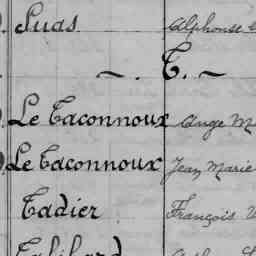 Suas Alphonse
~ . T. ~
Le Taconnoux Ange M
Le Taconnoux Jean Marie
Tadier François